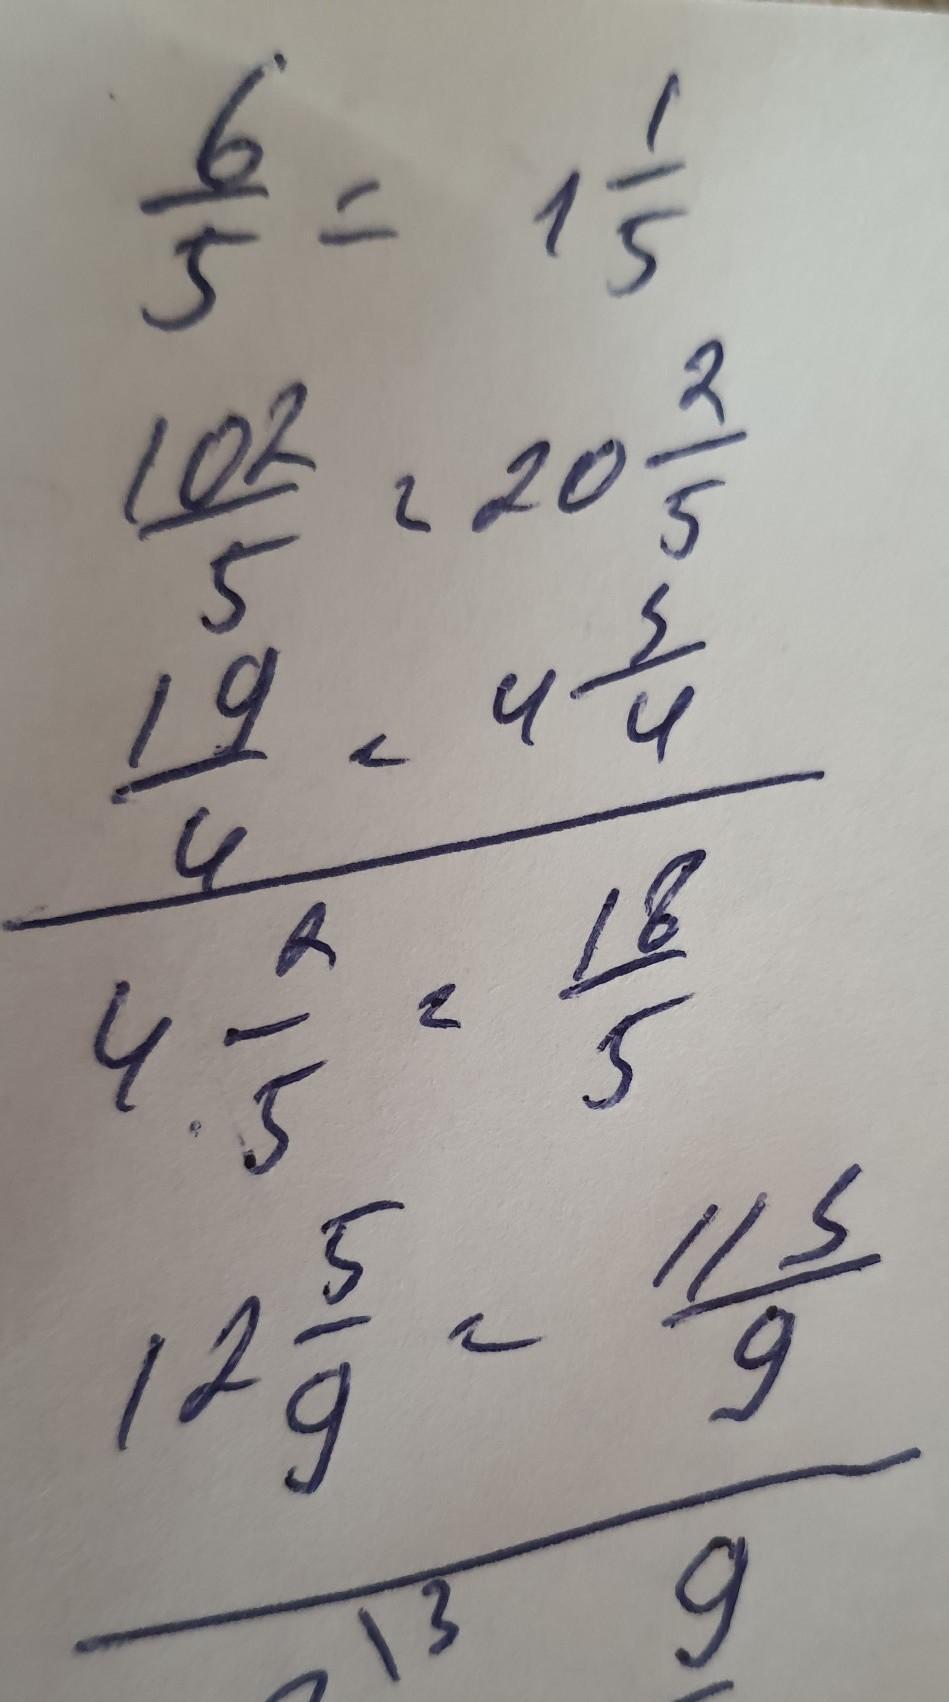 6/5 = 1 1/5
102/5 = 20 2/5
19/4 = 4 5/4
4 2/5 = 18/5
12 5/9 = 115/9
13 9